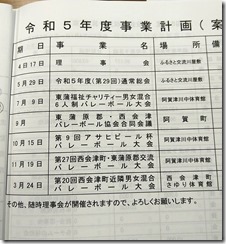 令和5年度事業計画（案
期 日 事 業 名 場 所 備
4月17日 理 事 会 ふるさと交流川屋敷
5月29日 令和5年度(第29回)通常総会 ふるさと交流川屋敷
7月9日 東蒲福祉チャリティー男女混合
6人制バレーボール大会 阿賀津川中体育館
9月 東蒲原郡・西会津
バレーボール協会合同会議 阿賀町
10月15日 第9回アサヒビール杯
バレーボール大会 阿賀津川中体育館
11月19日 第27回西会津町・東蒲原郡交流
バレーボール大会 阿賀津川中体育館
3月24日 第20回西会津町近隣男女混合
バレーボール大会 西会津町
さゆり体育館
その他、随時理事会が開催されますので、よろしくお願いします。